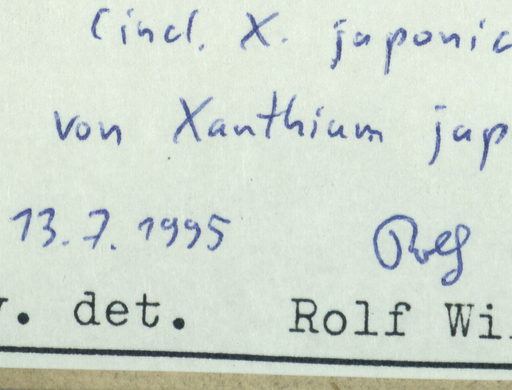 (incl. X. japonic
von Xanthium jap
13.7.1995 Rolf
v. det. Rolf Wil